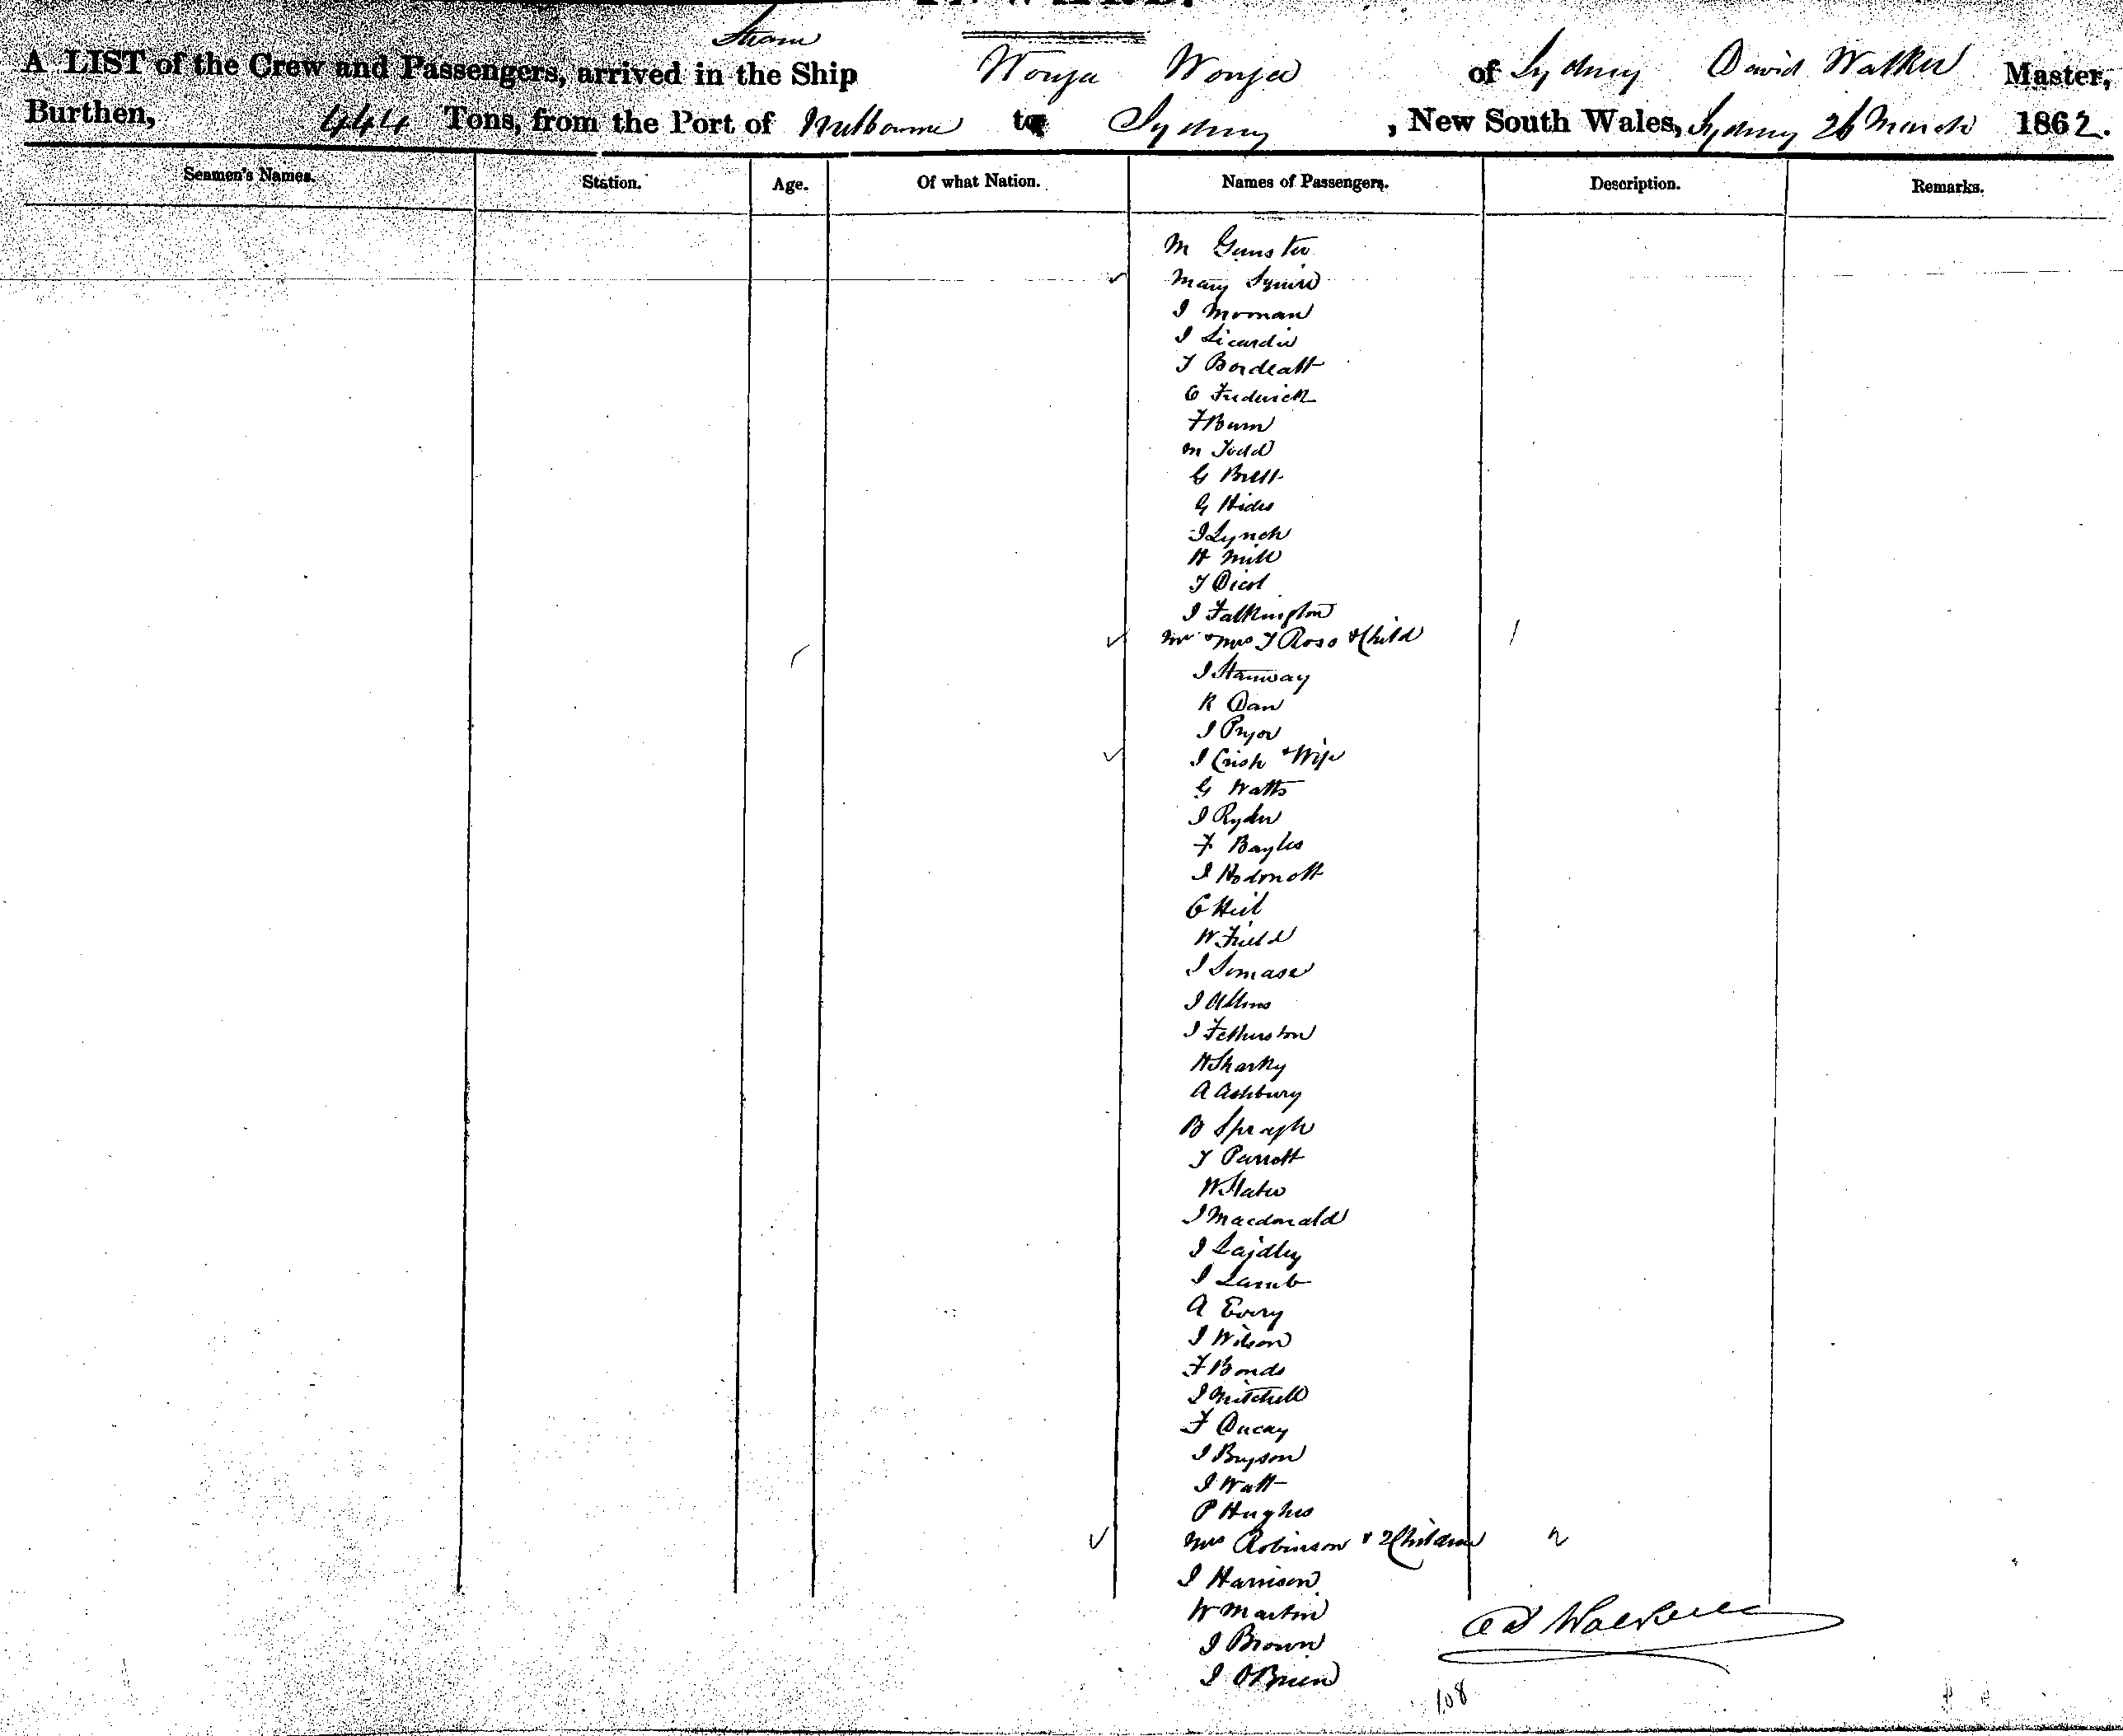 Steam
A LIST of the Crew and Passengers, arrived in the Ship Wonga Wonga of Sydney David Walker Master,
Burthen, 444 Tons, from the Port of Melbourne to Sydney, New South Wales, Sydney 26 March 1862.
Seamen's Names. Station. Age. Of what Nation. Names of Passengers. Description. Remarks.
M Gunster
Mary Squire
I Moonan
I Sicardie
T Bordeatt
C Frederick
F Burn
M Todd
G Brett
G Hides
I Lynch
H Mill
T Dicot
I Falkington
Mr & Mrs T Ross & Child 1
I Stanway
R Dan
I Pryor
I Crish & Wife
G Watts
I Ryder
F Bayles
I Hodmott
C Hiel
W Field
I Somase
I Allins
I Fetherston
H Sharky
A Ashbury
B Spragh
T Parrott
W Slater
I Macdonald
I Laidley
I Lamb
A Every
I Wilson
F Bonds
I Mitchell
F Ducay
I Bryson
I Watt
P Hughes
Mrs Robinson & 2 Children 2
I Harrison
W Martin
I Brown
I OBrien
D Walker
108